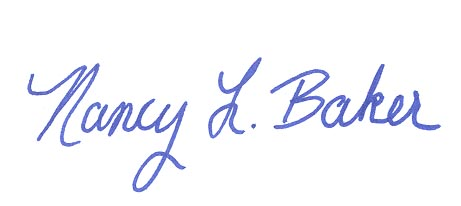 Nancy L. Baker